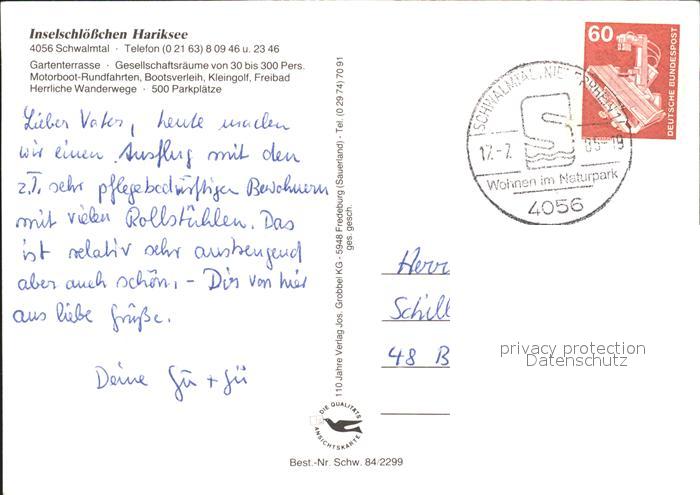 Inselschlößchen Hariksee
4056 Schwalmtal · Telefon (0 21 63) 8 09 46 u. 23 46
Gartenterrasse · Gesellschaftsräume von 30 bis 300 Pers.
Motorboot-Rundfahrten, Bootsverleih, Kleingolf, Freibad
Herrliche Wanderwege · 500 Parkplätze
Lieber Vater, heute machen
wir einen Ausflug mit den
z.T. sehr pflegebedürftigen Bewohnern
mit vielen Rollstühlen. Das
ist relativ sehr anstrengend
aber auch schön. - Dir von hier
aus liebe Grüße.
Deine Gü + Gü
110 Jahre Verlag Jos. Grobbel KG - 5948 Fredeburg (Sauerland) - Tel. (0 29 74) 70 91
ges. gesch.
DIE QUALITÄTS
ANSICHTSKARTE
Best.-Nr. Schw. 84/2299
60
DEUTSCHE BUNDESPOST
SCHWALMTAL, NIEDERRHEIN
17.-7. 85-19
Wohnen im Naturpark
4056
Herr
Schill
48 B
privacy protection
Datenschutz